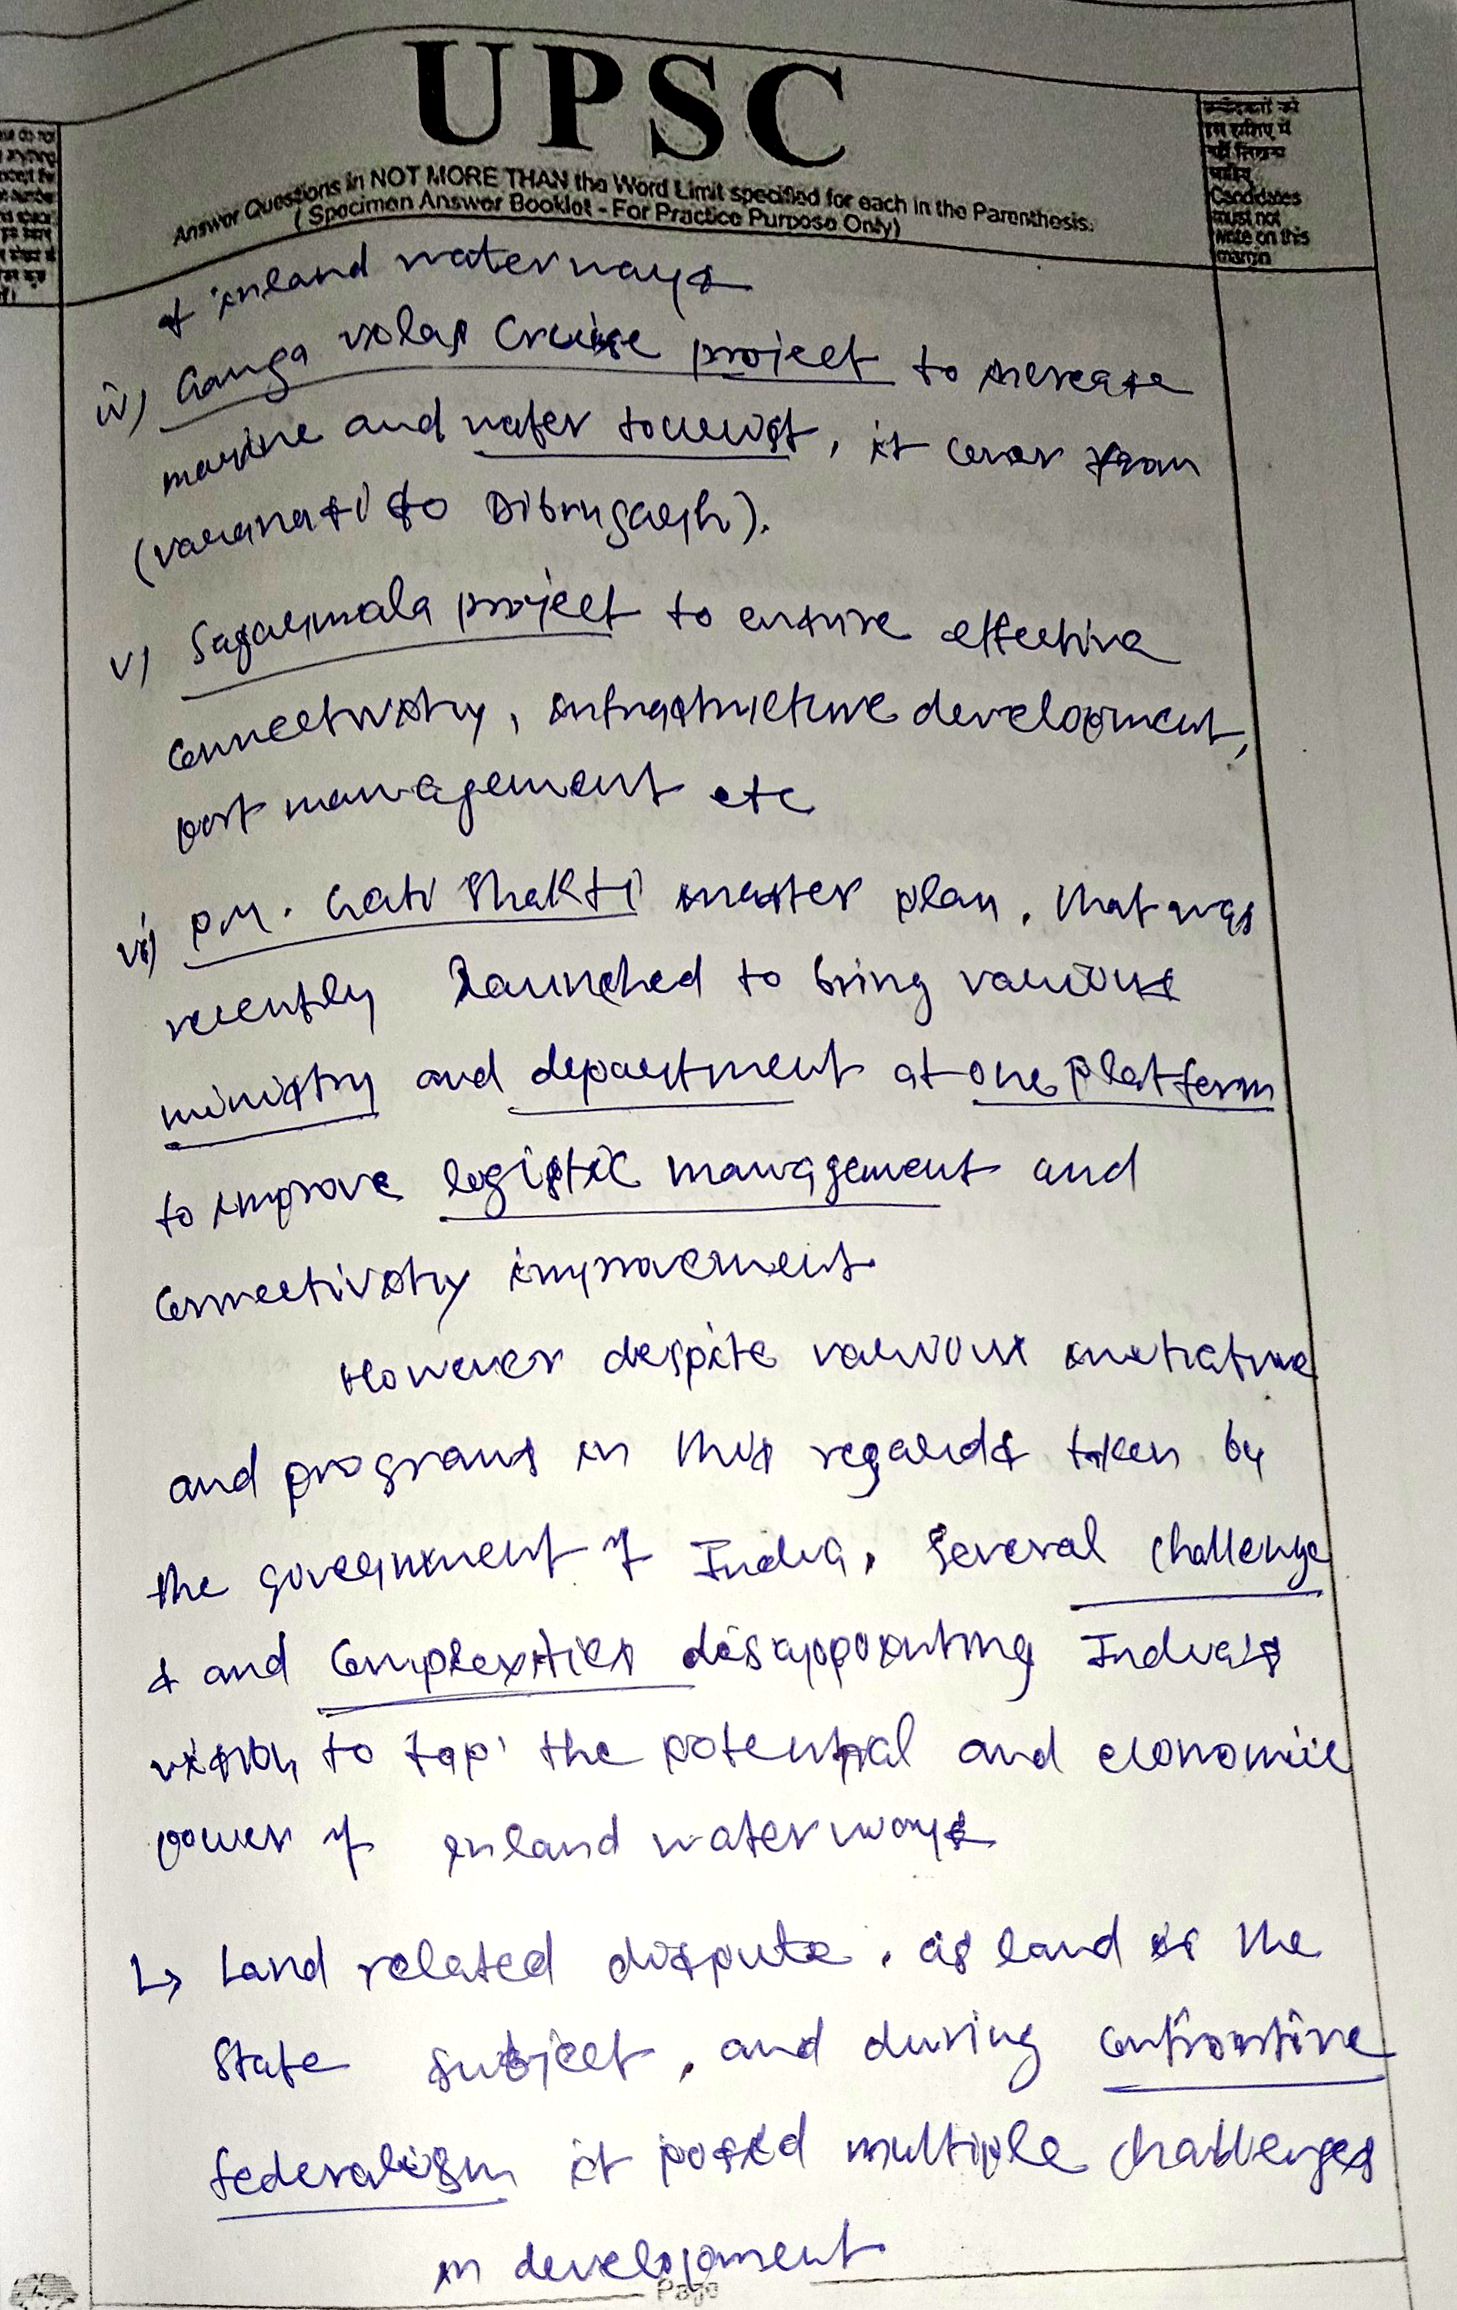 UPSC
Answer Questions in NOT MORE THAN the Word Limit specified for each in the Parenthesis.
( Specimen Answer Booklet - For Practice Purpose Only)
उम्मीदवारों को
इस हाशिए में
नहीं लिखना
चाहिए
Candidates
must not
write on this
margin
& inland waterways
iv) Ganga vilas Cruise project to increase
marine and water tourist, it cover from
(varanasi to Dibrugarh).
v) Sagarmala project to ensure effective
connectivity, infrastructure development,
port management etc
vi) P.M. Gati Shakti master plan, that was
recently launched to bring various
ministry and department at one platform
to improve logistic management and
connectivity improvement
However despite various initiative
and programs in this regards taken by
the government of India, several challenge
& and Complexities disappointing India's
vision to tap the potential and economic
power of inland waterways
↳ Land related dispute, as land is the
State subject, and during
federalism it posed multiple challenges
in development
Page